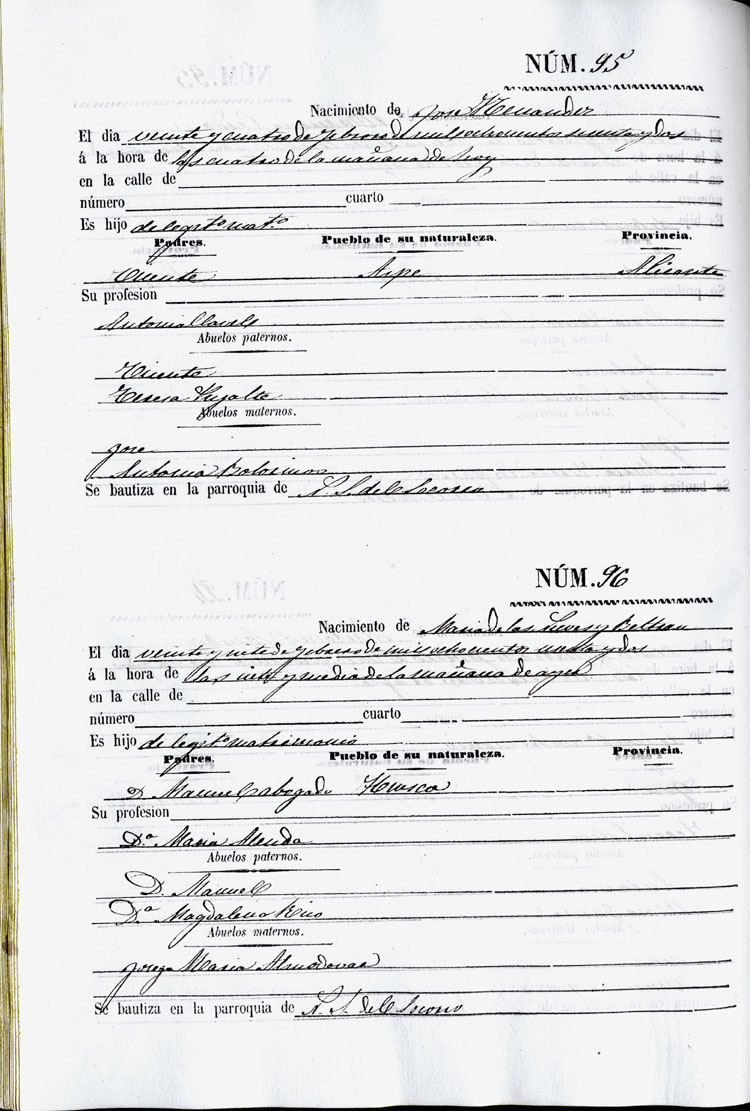 NÚM. 95
Nacimiento de Jose Hernandez
El dia veinte y cuatro de febrero de mil ochocientos sesenta y dos
á la hora de las cuatro de la mañana de hoy
en la calle de
número cuarto
Es hijo de legit.º mat.º
Padres. Pueblo de su naturaleza. Provincia.
Vicente Aspe Alicante
Su profesion
Antonia
Abuelos paternos.
Vicente
Teresa
Abuelos maternos.
Jose
Antonia
Se bautiza en la parroquia de N. S. del Socorro
NÚM. 96
Nacimiento de Maria de las Nieves y Beltran
El dia veinte y siete de febrero de mil ochocientos sesenta y dos
á la hora de las siete y media de la mañana de ayer
en la calle de
número cuarto
Es hijo de legit.º matrimonio
Padres. Pueblo de su naturaleza. Provincia.
D. Manuel abogado Huesca
Su profesion
D.ª Maria
Abuelos paternos.
D. Manuel
D.ª Magdalena Rico
Abuelos maternos.
Maria Almodovar
Se bautiza en la parroquia de N. S. del Socorro